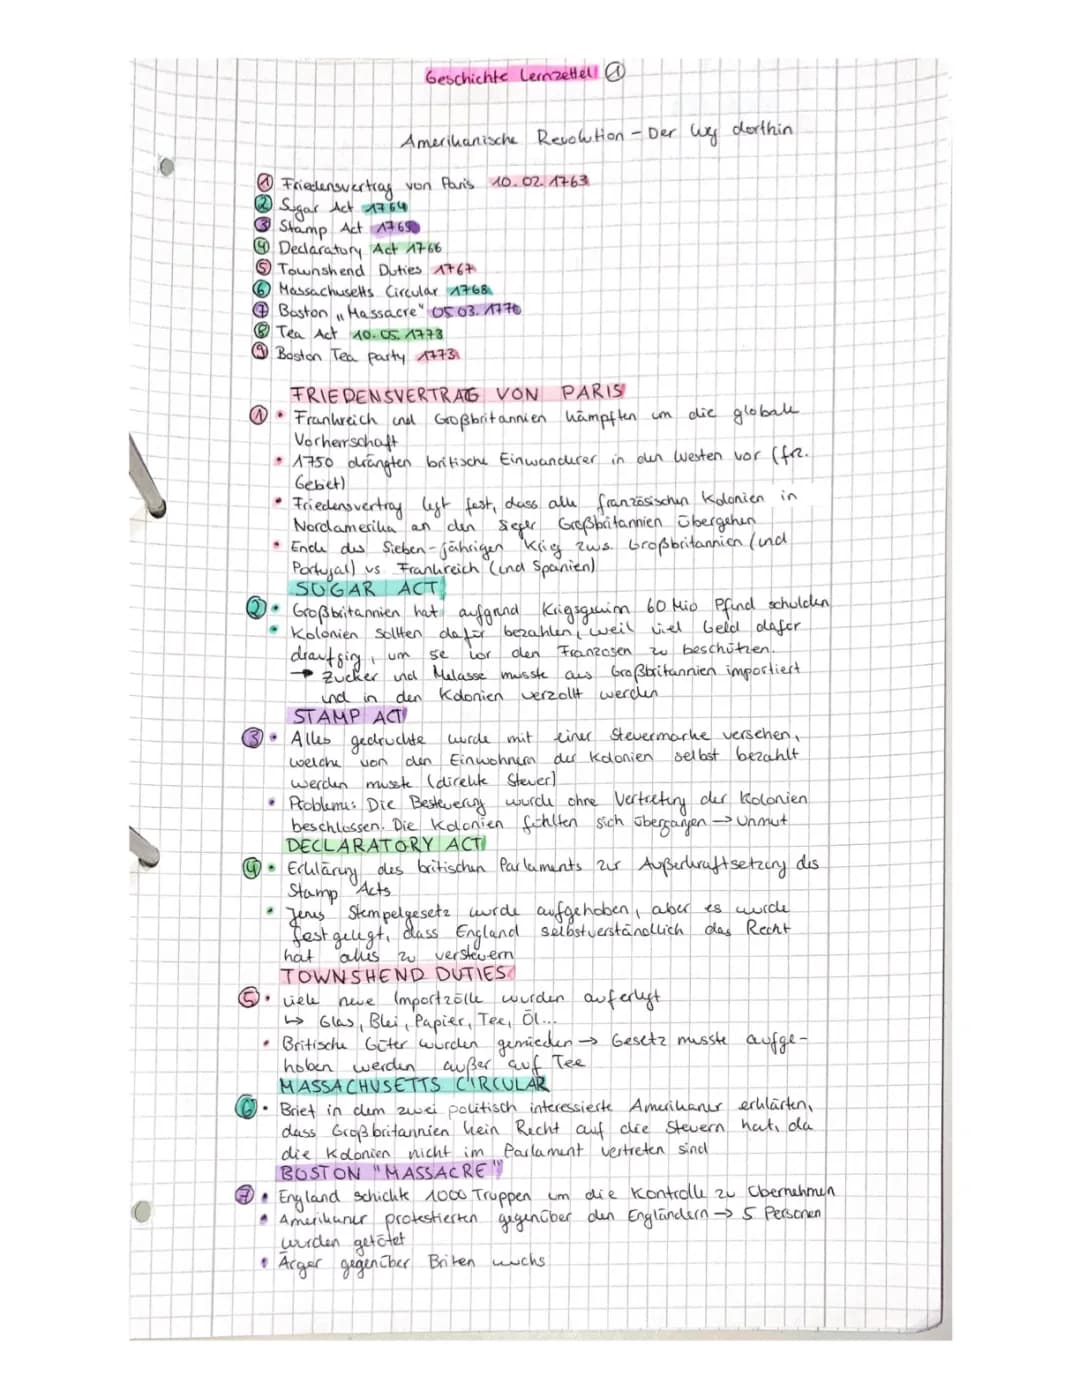 Geschichte Lernzettel ①
Amerikanische Revolution - Der Weg dorthin
① Friedensvertrag von Paris 10.02.1763
② Sugar Act 1764
③ Stamp Act 1765
④ Declaratory Act 1766
⑤ Townshend Duties 1767
⑥ Massachusetts Circular 1768
⑦ Boston „Massacre" 05.03.1770
⑧ Tea Act 10.05.1773
⑨ Boston Tea party 1773
FRIEDENSVERTRAG VON PARIS
① • Frankreich und Großbritannien kämpften um die globale
Vorherrschaft
• 1750 drängten britische Einwanderer in den Westen vor (frz.
Gebiet)
• Friedensvertrag legt fest, dass alle französischen Kolonien in
Nordamerika an den Sieger Großbritannien übergehen
• Ende des Sieben-jährigen Krieg zws. Großbritannien (und
Portugal) vs Frankreich (und Spanien)
SUGAR ACT
② • Großbritannien hat aufgrund Kriegsgewinn 60 Mio Pfund schulden
• Kolonien sollten dafür bezahlen, weil viel Geld dafür
draufging, um sie vor den Franzosen zu beschützen.
→ Zucker und Melasse musste aus Großbritannien importiert
und in den Kolonien verzollt werden
STAMP ACT
③ • Alles gedruckte wurde mit einer Steuermarke versehen,
welche von den Einwohnern der Kolonien selbst bezahlt
werden musste (direkte Steuer)
• Probleme: Die Besteuerung wurde ohne Vertretung der Kolonien
beschlossen. Die Kolonien fühlten sich übergangen → Unmut
DECLARATORY ACT
④ • Erklärung des britischen Parlaments zur Außerkraftsetzung des
Stamp Acts
• Jenes Stempelgesetz wurde aufgehoben, aber es wurde
festgelegt, dass England selbstverständlich das Recht
hat alles zu versteuern
TOWNSHEND DUTIES
⑤ • viele neue Importzölle wurden auferlegt
↳ Glas, Blei, Papier, Tee, Öl...
• Britische Güter wurden gemieden → Gesetz musste aufge-
hoben werden außer auf Tee
MASSACHUSETTS CIRCULAR
⑥ • Brief in dem zwei politisch interessierte Amerikaner erklärten,
dass Großbritannien kein Recht auf die Steuern hat, da
die Kolonien nicht im Parlament vertreten sind
BOSTON "MASSACRE"
⑦ • England schickte 1000 Truppen um die Kontrolle zu übernehmen
• Amerikaner protestierten gegenüber den Engländern → 5 Personen
wurden getötet
• Ärger gegenüber Briten wuchs